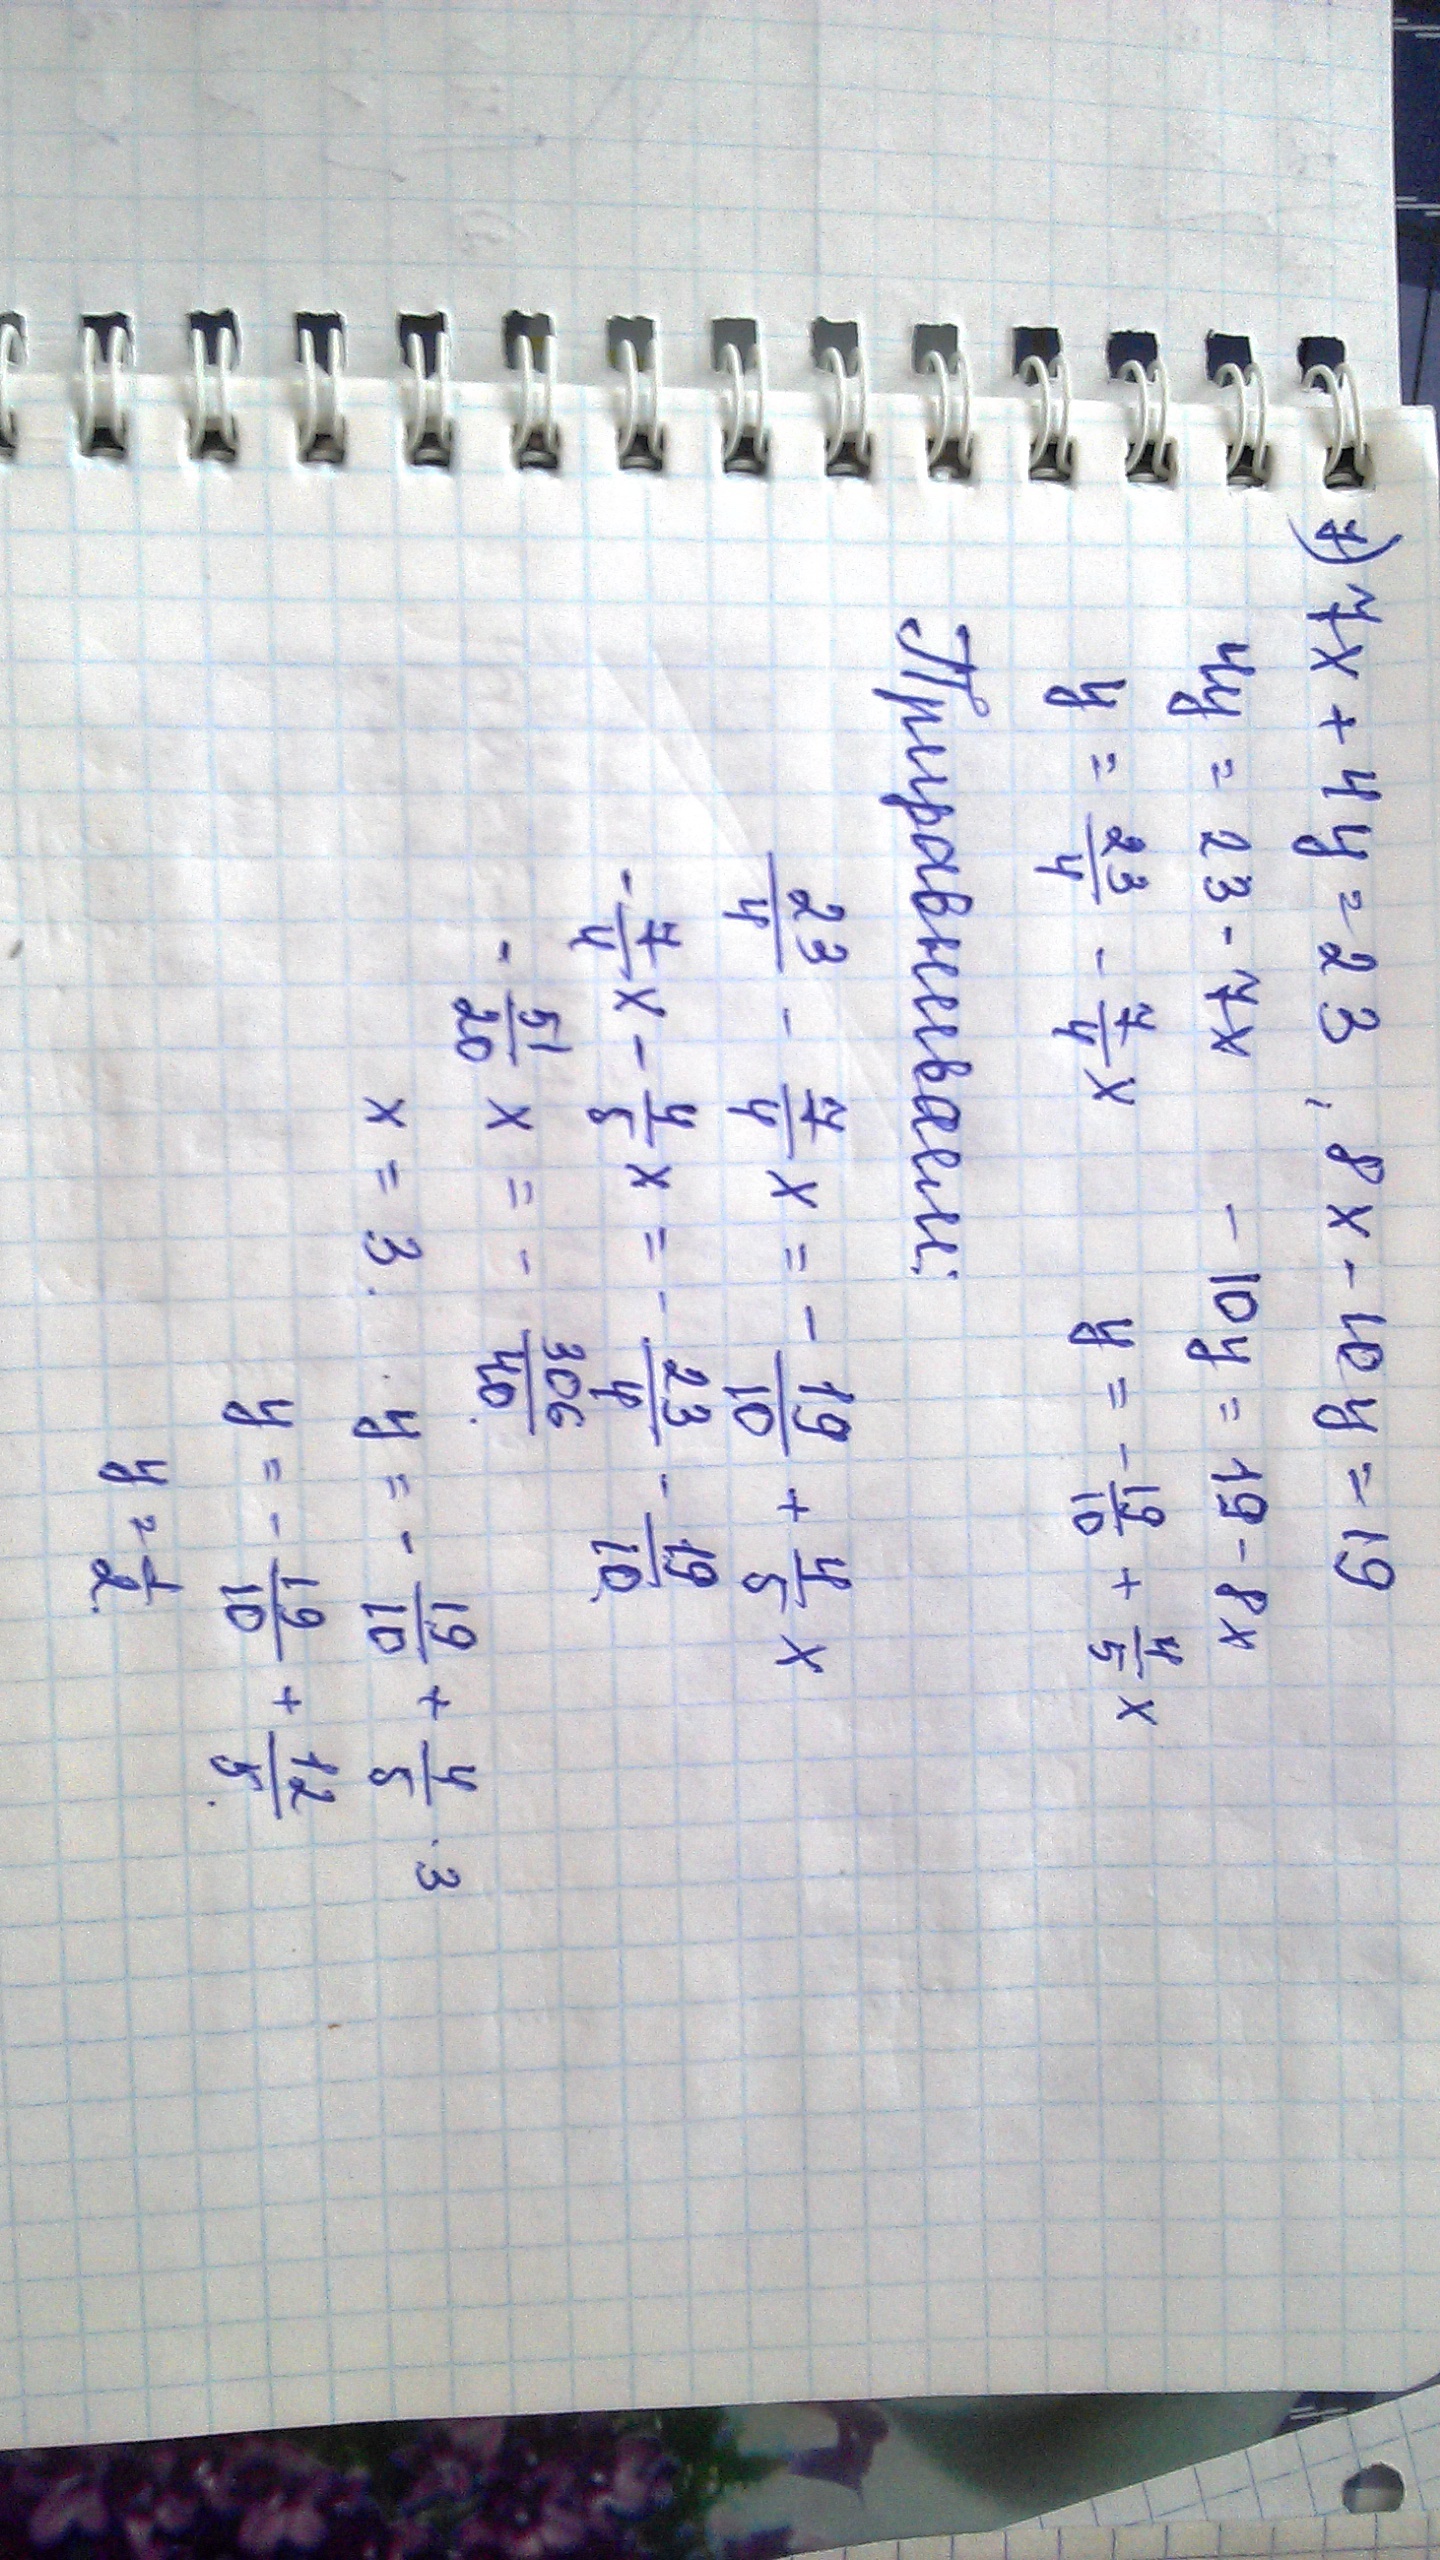 7) 7x + 4y = 23 ; 8x - 10y = 19
4y = 23 - 7x - 10y = 19 - 8x
y = 23/4 - 7/4 x y = - 19/10 + 4/5 x
Приравниваем:
23/4 - 7/4 x = - 19/10 + 4/5 x
- 7/4 x - 4/5 x = - 23/4 - 19/10
- 51/20 x = - 306/40.
x = 3. y = - 19/10 + 4/5 · 3
y = - 19/10 + 12/5.
y = 1/2.